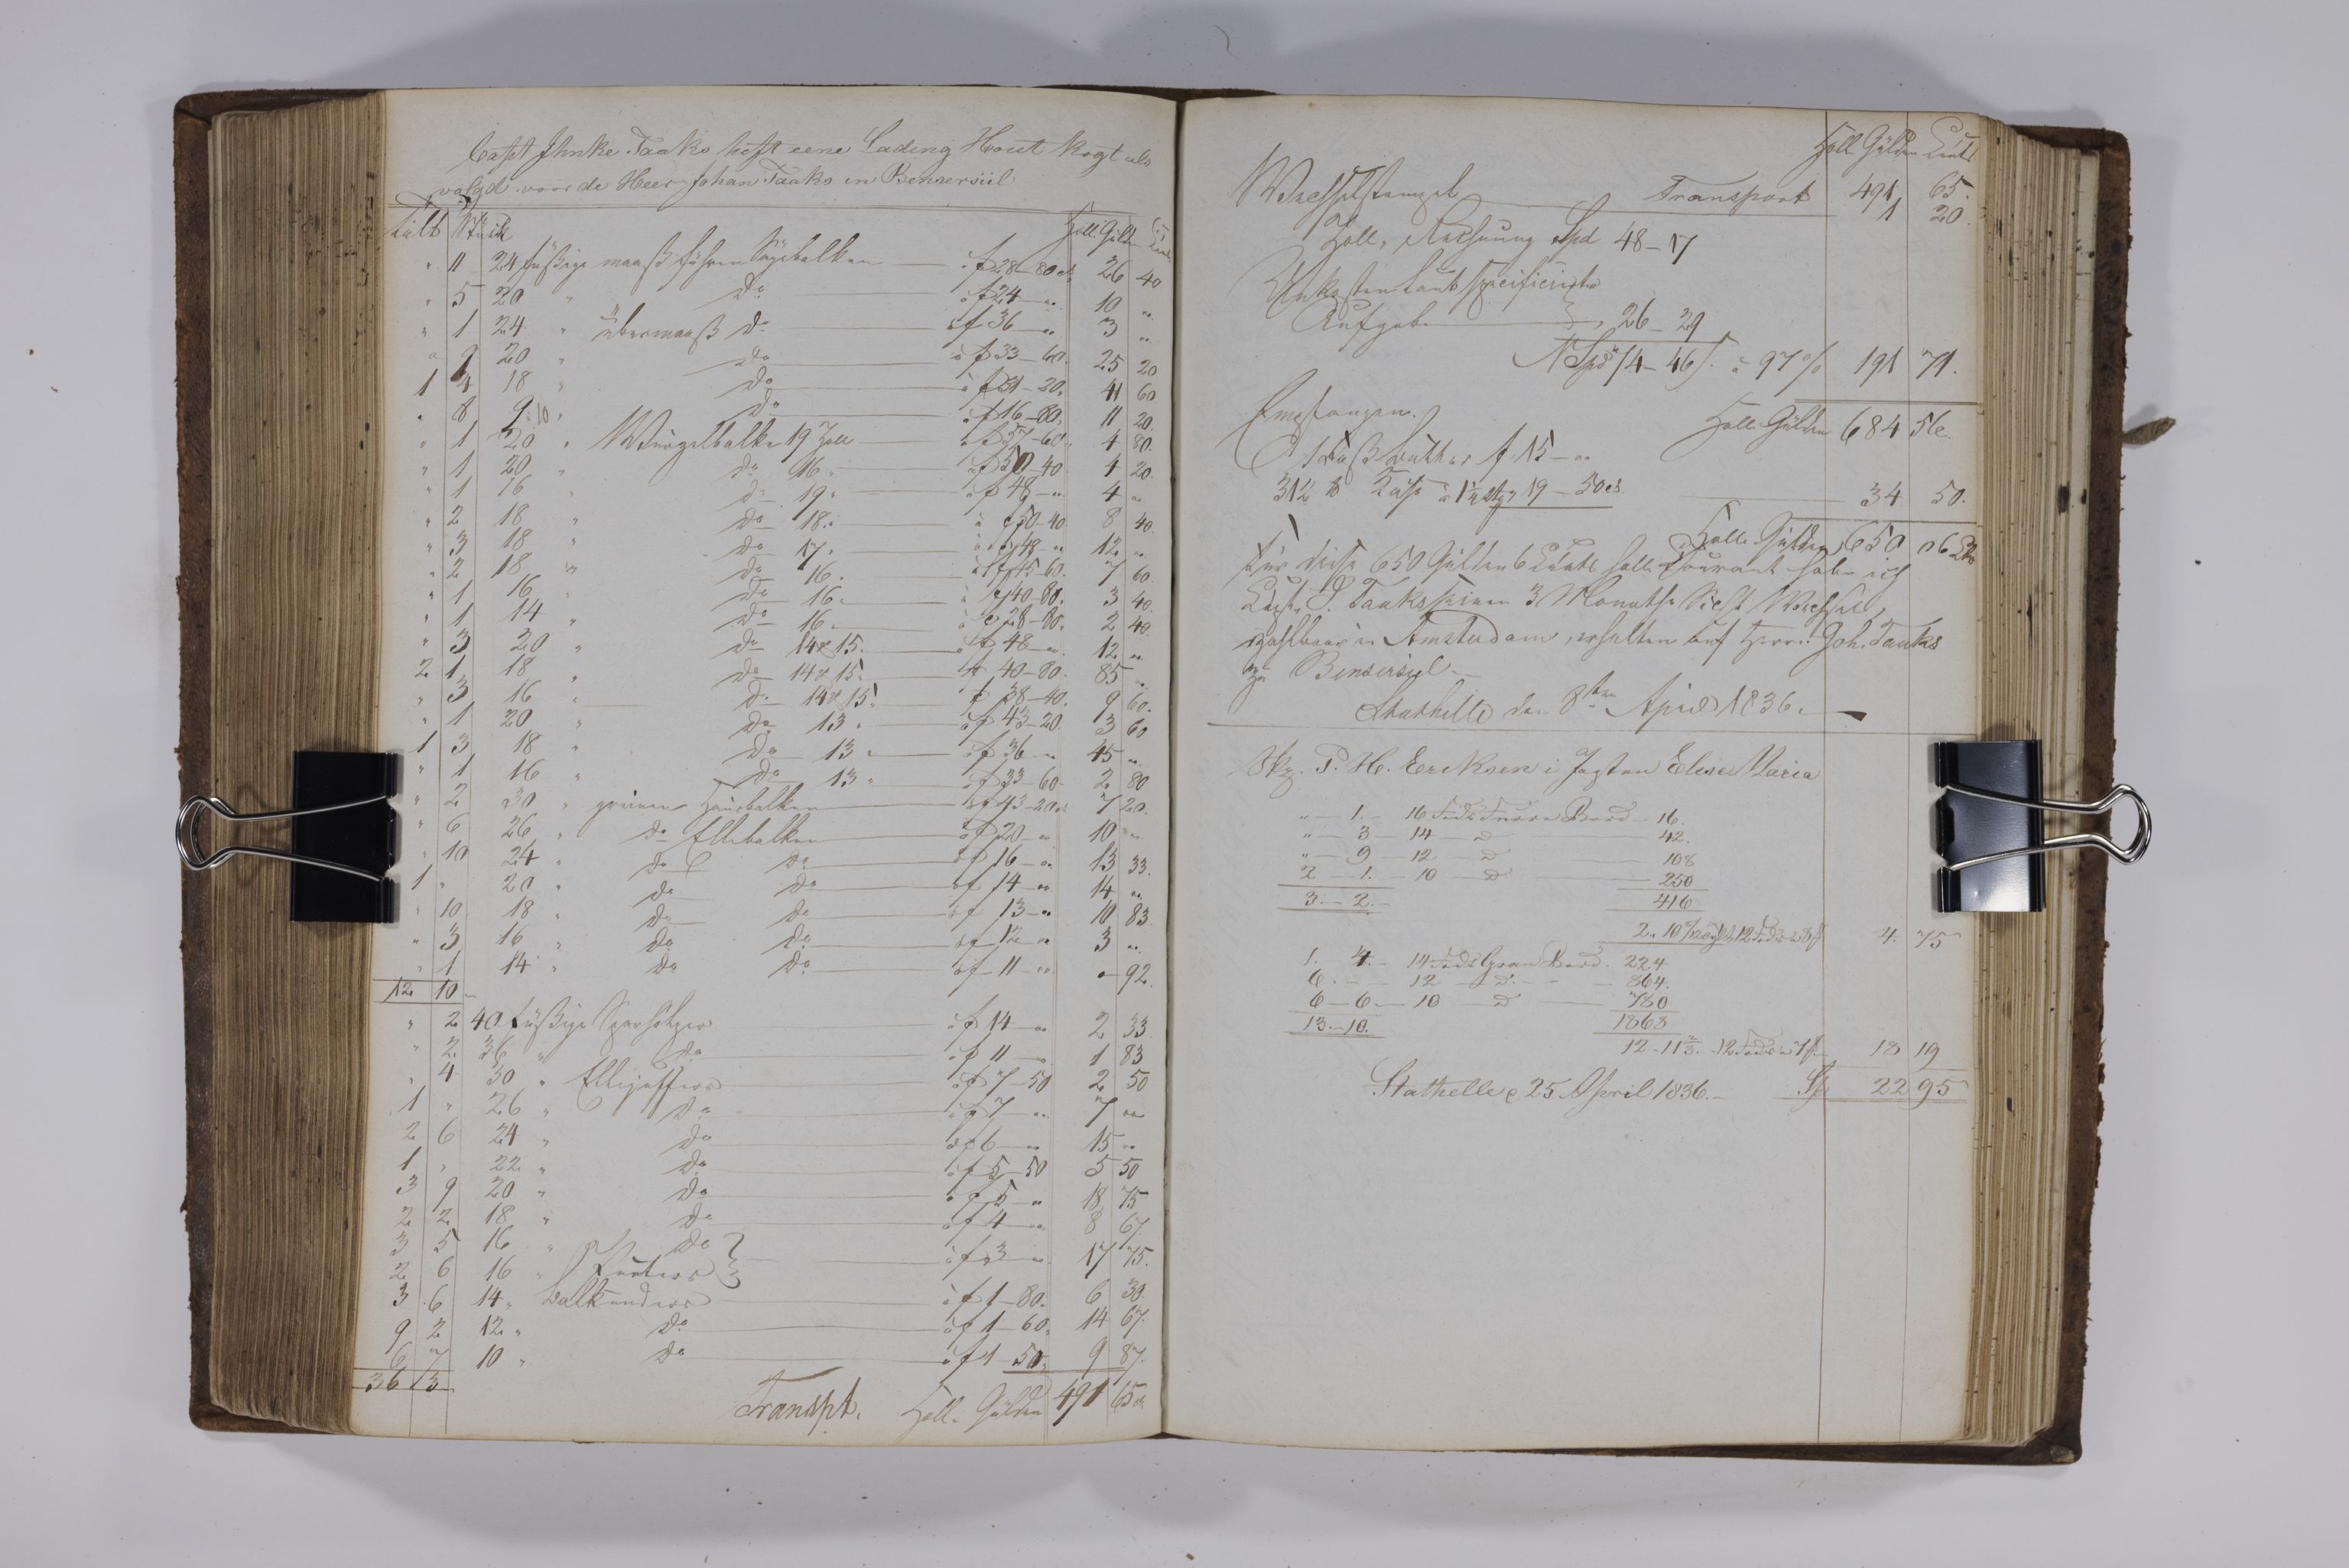 Capt Ihnke Taaks heft eene Lading Hout kogt als
volgd voor de Heer Johan Taaks in Bensersiel
Tült Stück Holl. Gülden Cents
" 11 24 füßige maaß führen Sägebalken à f 28-80 cts 26 40
" 5 20 " do à f 24 - " 10 "
" 1 24 " übermaaß do à f 36 - " 3 "
" 9 20 " do à f 33-60. 25 20
1 4 18 " do à f 31-20. 41 60
" 8 9.10 " do à f 16-80. 11 20.
" 1 20 " Mürgelbalke 19 Zoll à f 57-60. 4 80.
" 1 20 " do 16 " à f 50-40 4 20.
" 1 16 " do 19 " à f 48 - " 4 "
" 2 18 " do 18 " à f 50-40. 8 40.
" 3 18 " do 17 " à f 48 - " 12 "
" 2 18 " do 16 " à f 45-60. 7 60.
" 1 16 " do 16 " à f 40-80. 3 40.
" 1 14 " do 16 " à f 28-80. 2 40.
" 3 20 " do 14 & 15 " à f 48 - " 12 "
2 1 18 " do 14 & 15 " f 40-80. 85 "
" 3 16 " do 14 & 15 " f 38-40. 9 60.
" 1 20 " do 13 " à f 43-20. 3 60
1 3 18 " do 13 " à f 36 - " 45 "
" 1 16 " do 13 " à f 33-60. 2 80
" 2 30 " grünen Hausbalken à f 43-20 cts 7 20.
" 6 26 " do Ellebalken à f 20 - " 10 "
" 10 24 " do do à f 16 - " 13 33.
1 " 20 " do do à f 14 - " 14 "
" 10 18 " do do à f 13 - " 10 83
" 3 16 " do do à f 12 - " 3 "
" 1 14 " do do à f 11 - " " 92.
12 10
" 2 40 füßige Sparhölzer à f 14 - " 2 33
" 2 36 " do à f 11 - " 1 83
" 4 30 " Ellejuffers à f 7-50 2 50
1 " 26 " do à f 7 - " 7 "
2 6 24 " do à f 6 - " 15 "
1 " 22 " do à f 5-50 5 50
3 9 20 " do à f 5 - " 18 75
2 2 18 " do à f 4 - " 8 67.
3 5 16 " do
2 6 16 " à f 3 - " 17 75.
3 6 14 " à f 1-80. 6 30.
9 2 12 " do à f 1-60. 14 67.
6 7 10 " do à f 1-50. 9 87.
36 13
Transpt. Holl. Gülden 491 65 ct
Holl Gülden Cents
Transport 491 65.
Wechselstempel 1 20.
Zoll, Rechnung Spd 48-17
Unkosten laut specificirte
Aufgabe 26-29
NSpd 74-46 ß. à 97% 191 71.
Holl. Gülden 684 56.
Empfangen.
1 Faß Butter f 15 - "
312 ℔ Käse 19-50 cts. 34 50.
Holl. Gülden 650 06 cts
Für diese 650 Gülden 6 Cents holl. Courant habe ich
Capt. I. Taaks seinen 3 Monathe Sicht Wechsel,
zahlbaar in Amsterdam, erhalten auf Herrn Joh. Taaks
zu Bensersiel.
Stathelle den 8ten April 1836.
Skp. P. H. Eriksen i Jagten Elise Maria
" - 1. - 16 Fods Furre Bord - 16.
" - 3 14 - D 42.
" - 9 - 12 - D 108
2 - 1. - 10 - D 250
3 - 2. 416
4. 75
1. 4. 14 Fods Gran Bord. 224
6. - 12 - D. 864.
6 - 6. - 10 - D 780
13. - 10. 1868
12-11⅔ 12 Fods 18 19
Stathelle d 25 April 1836. Sp 22 95